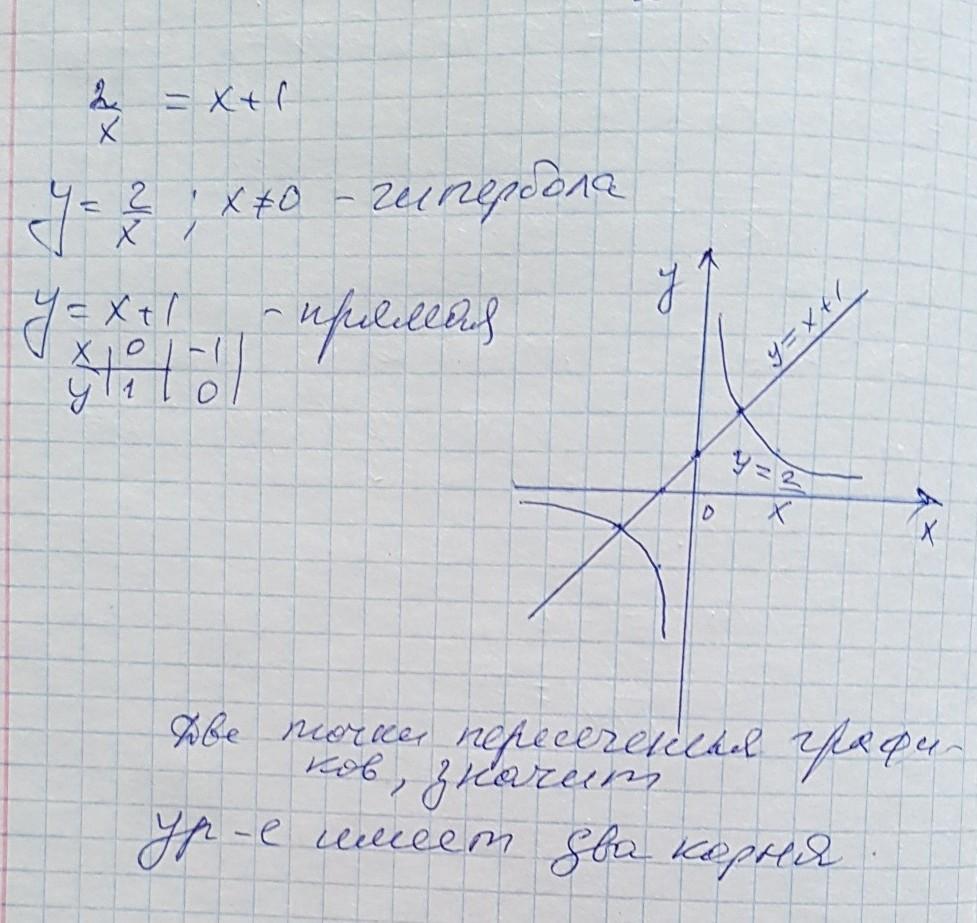 2/x = x+1
y = 2/x ; x≠0 - гипербола
y = x+1 - прямая
x | 0 | -1 |
y | 1 | 0 |
y
y = x+1
y = 2/x
0
x
Две точки пересечения графи-
ков, значит
ур-е имеет два корня.